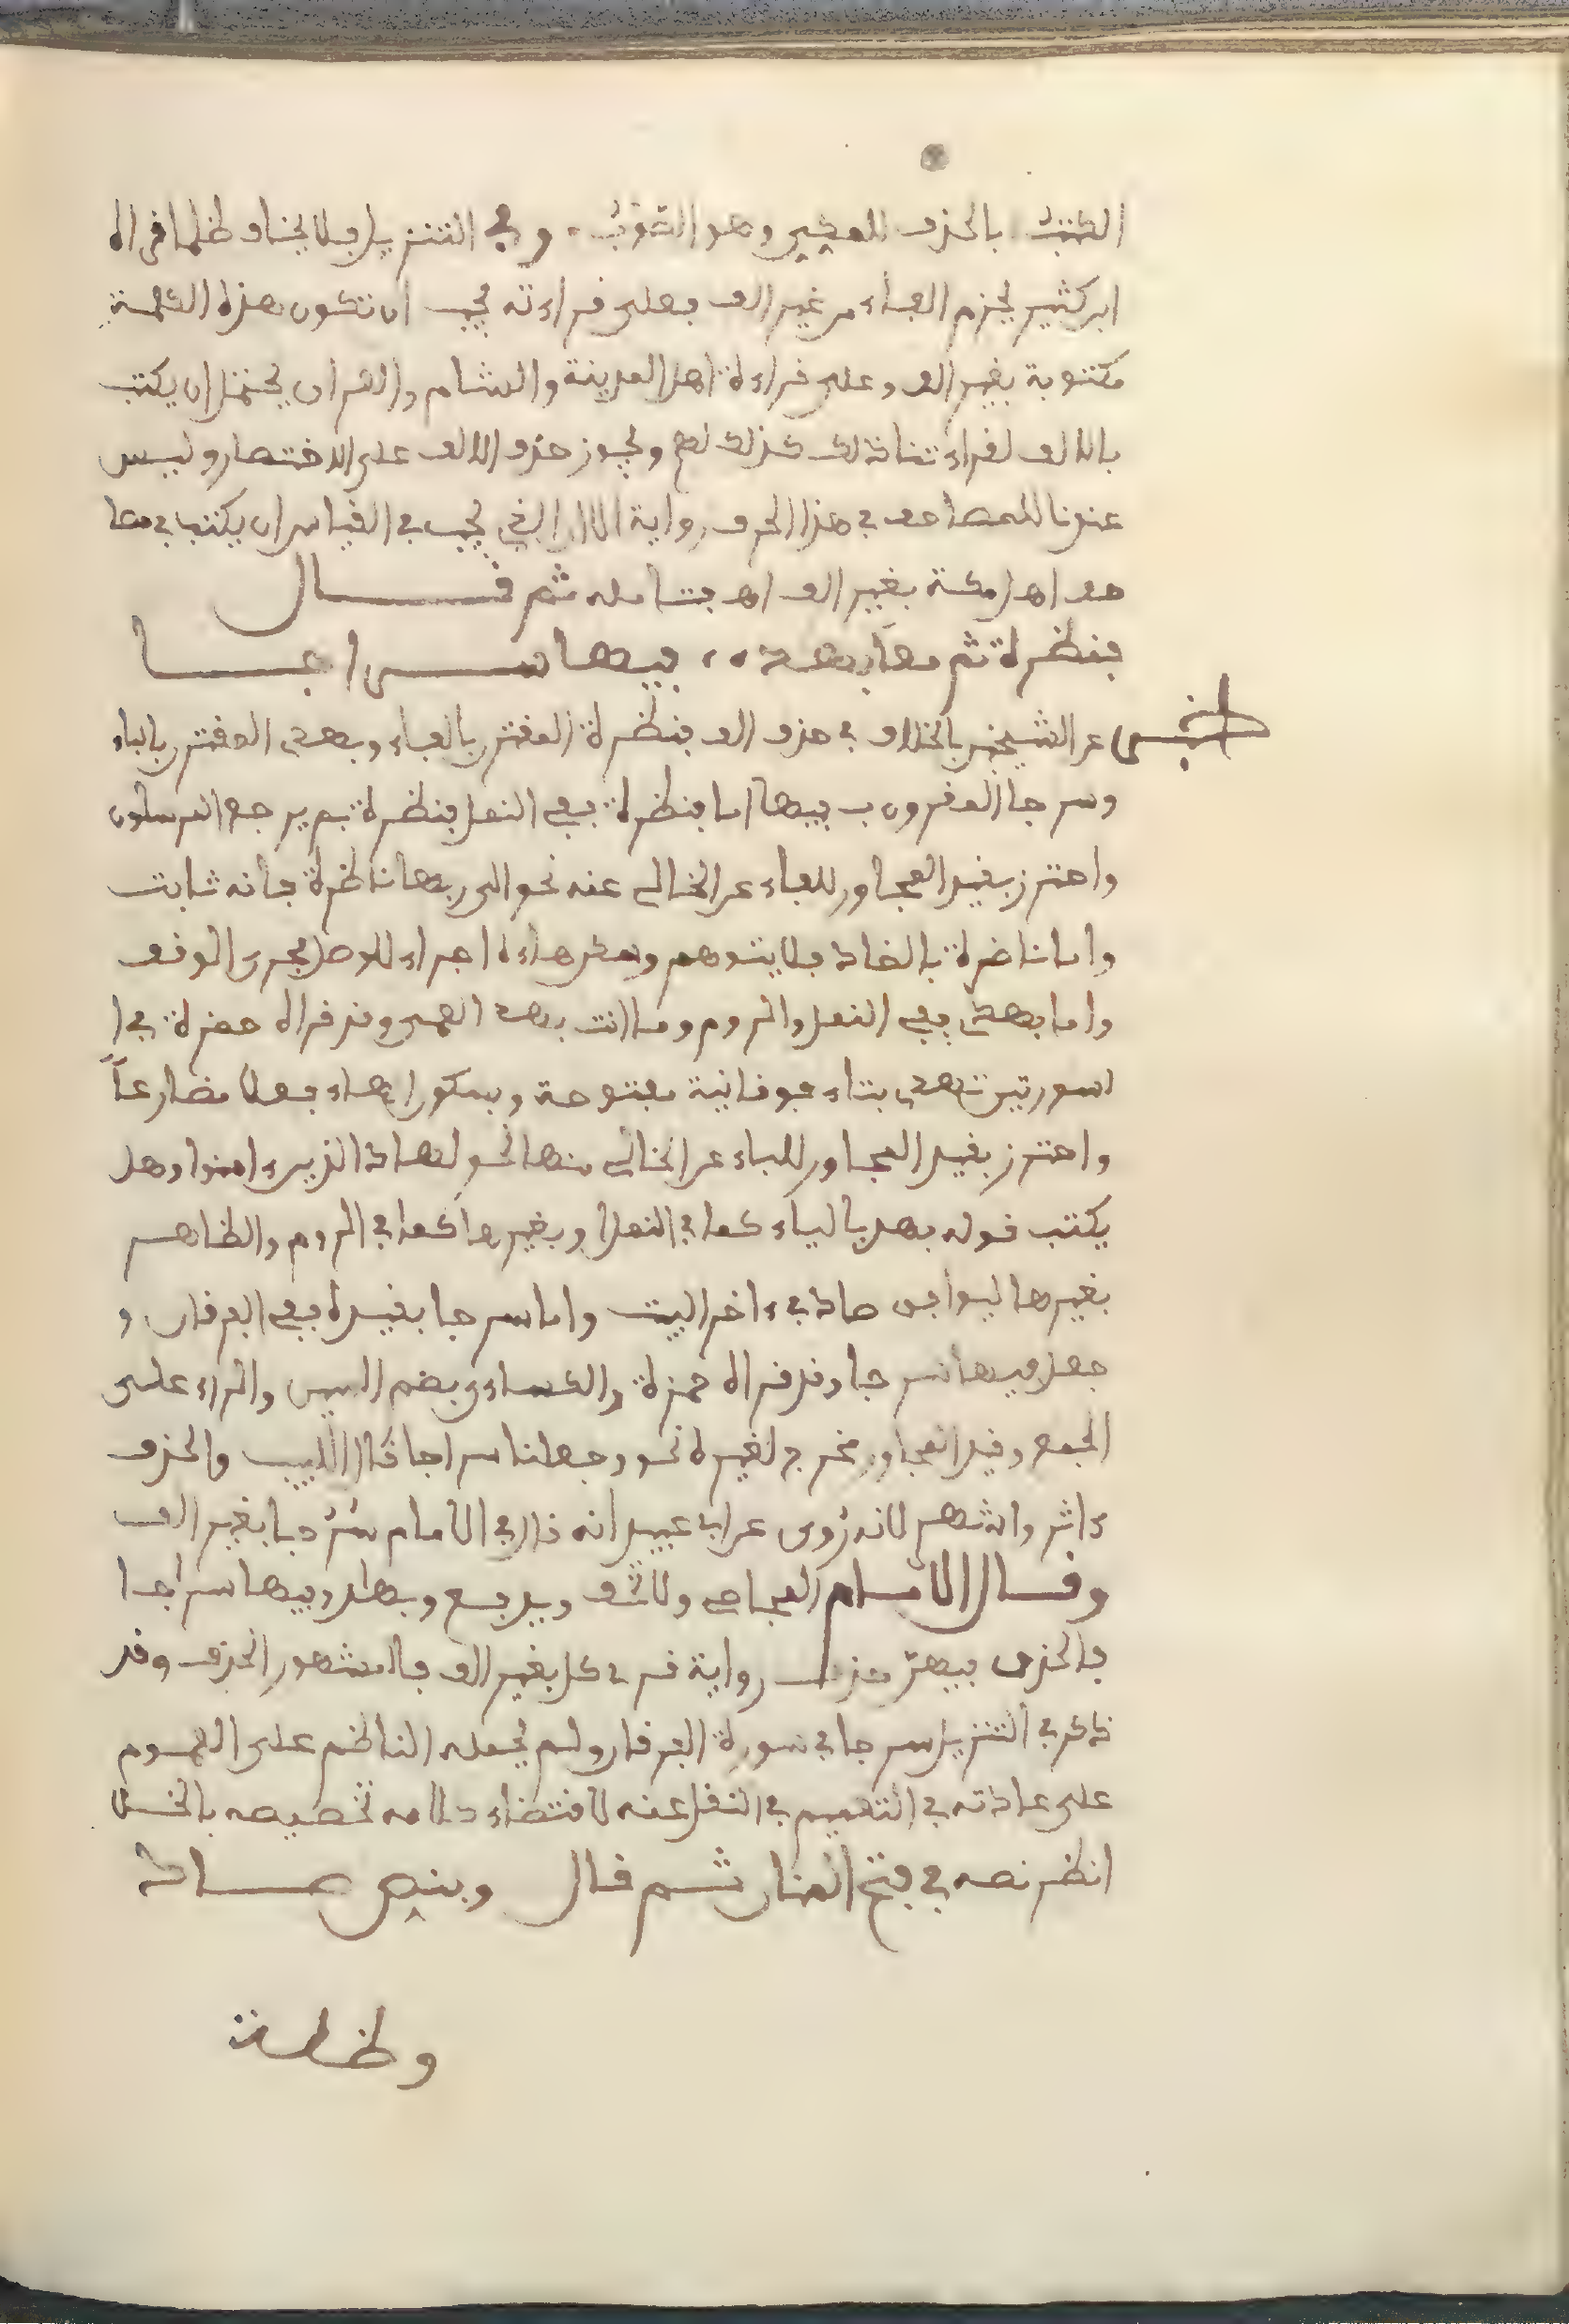 الكتب بالحذف للمكي وهو الثوب وفي التنزيل فلا يخاف ظلما قراه
ابن كثير بجزم الفاء من غير الف فعلى قراءته يجب ان تكون هذه الكلمة
مكتوبة بغير الف وعلى قراءة اهل المدينة والشام والعراق يحتمل ان يكتب
بالالف لقراءتنا ذلك كذلك لهم ويجوز حذف الالف على الاختصار وليس
عندنا للمصاحف في هذا الحرف رواية الا ان الذي يجب في القياس ان يكتب في مصا
حف اهل مكة بغير الف اهـ بتامله ثم قال
فنظرة ثم معا بهد فيها سراجا
اخبر عن الشيخين بالخلاف في حذف الف فنظرة المقترن بالفاء وبهدى المقترن بالباء
وسرجا المقرون بـ فيها اما فنظرة ففي النمل فنظرة بم يرجع المرسلون
واحترز بقيد المجاور للفاء عن الخالي عنه نحو الى ربها ناظرة فانه ثابت
واما ناضرة بالضاد فلا يتوهم وسكن هاءه اجراء للوصل مجرى الوقف
واما بهدى ففي النمل والروم وما انت بهد العمى وقد قراه حمزة في ا
لسورتين تهدى بتاء فوقانية مفتوحة وبسكون الهاء فعلا مضارعا
واحترز بقيد المجاور للباء عن الخالي منها نحو لهاد الذين ءامنوا وهل
يكتب قوله بهد بالياء كما في النمل او بغيرها كما في الروم والظاهر
بغيرها ليوافق صاد في ءاخر البيت واما سرجا بقيده ففي الفرقان و
جعل فيها سرجا وقد قراه حمزة والكساءي بضم السين والراء على
الجمع وقيد المجاور مخرج لغيره نحو وجعلنا سراجا قال اللبيب والحذف
ءاثر واشهر لانه روى عن ابي عبيد انه قال في الامام سرجا بغير الف
وقال الامام المجاصي ولا تخف ويدفع وبهد وفيها سراجا
فالحذف فيهن حذف رواية قرئ كل بغير الف فالمشهور الحذف وقد
ذكر في التنزيل سرجا في سورة الفرقان ولم يحمله الناظم على العموم
على عادته في التعميم في النقل عنه لاقتضاء كلامه تخصيصه بالخلا
انظر نصه في فتح المنان ثم قال وبنص صاد
وظلة